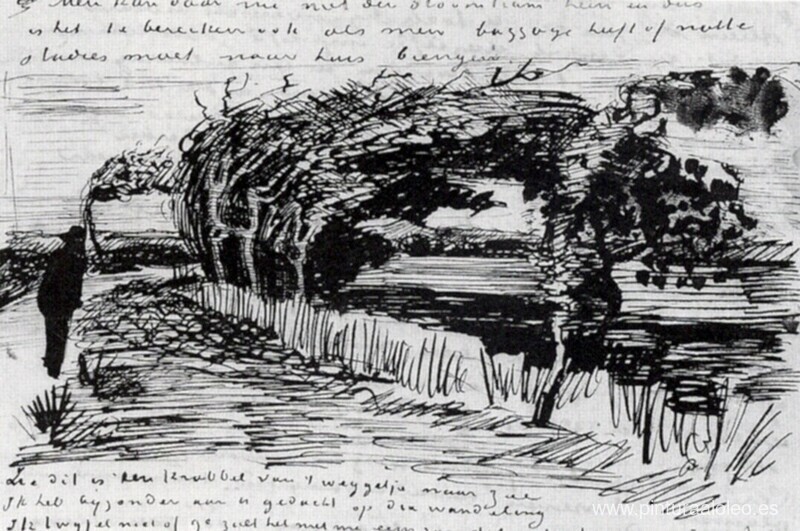 Men kan daar nu met de stoomtram heen en dus
is het te bereiken ook als men baggage heeft of natte
studies moet naar huis brengen.
Zie dit is een krabbel van 't weggetje naar zee
Ik heb byzonder aan U gedacht op die wandeling
Ik twyfel niet of ge zult het met me eens
www.pinturasaloleo.es